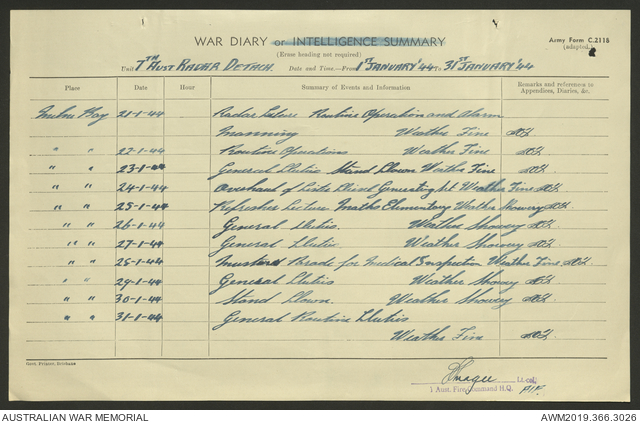 WAR DIARY or INTELLIGENCE SUMMARY
(Erase heading not required)
Army Form C.2118
(adapted)
Unit 7TH AUST RADAR DETACH. Date and Time—From 1ST JANUARY '44 31ST JANUARY '44
Place Date Hour Summary of Events and Information Remarks and references to
Appendices, Diaries, &c.
Milne Bay 21-1-44 Radar Lecture Routine Operation and Alarm
Manning Weather Fine
" " 22-1-44 Routine Operations Weather Fine
" " 23-1-44 General Duties Stand Down Weather Fine
" " 24-1-44 Overhaul of Diesel Generating Set Weather Fine
" " 25-1-44 Refresher Lecture Maths Elementary Weather Showery
" " 26-1-44 General Duties. Weather Showery
" " 27-1-44 General Duties Weather Showery
" " 28-1-44 Parade for Medical Inspection Weather Fine
" " 29-1-44 General Duties Weather Showery
" " 30-1-44 Stand Down. Weather Showery
" " 31-1-44 General Routine Duties
Weather Fine
Govt. Printer, Brisbane
Magee Lt. Col.
1 Aust. Fire Command H.Q.
AUSTRALIAN WAR MEMORIAL AWM2019.366.3026